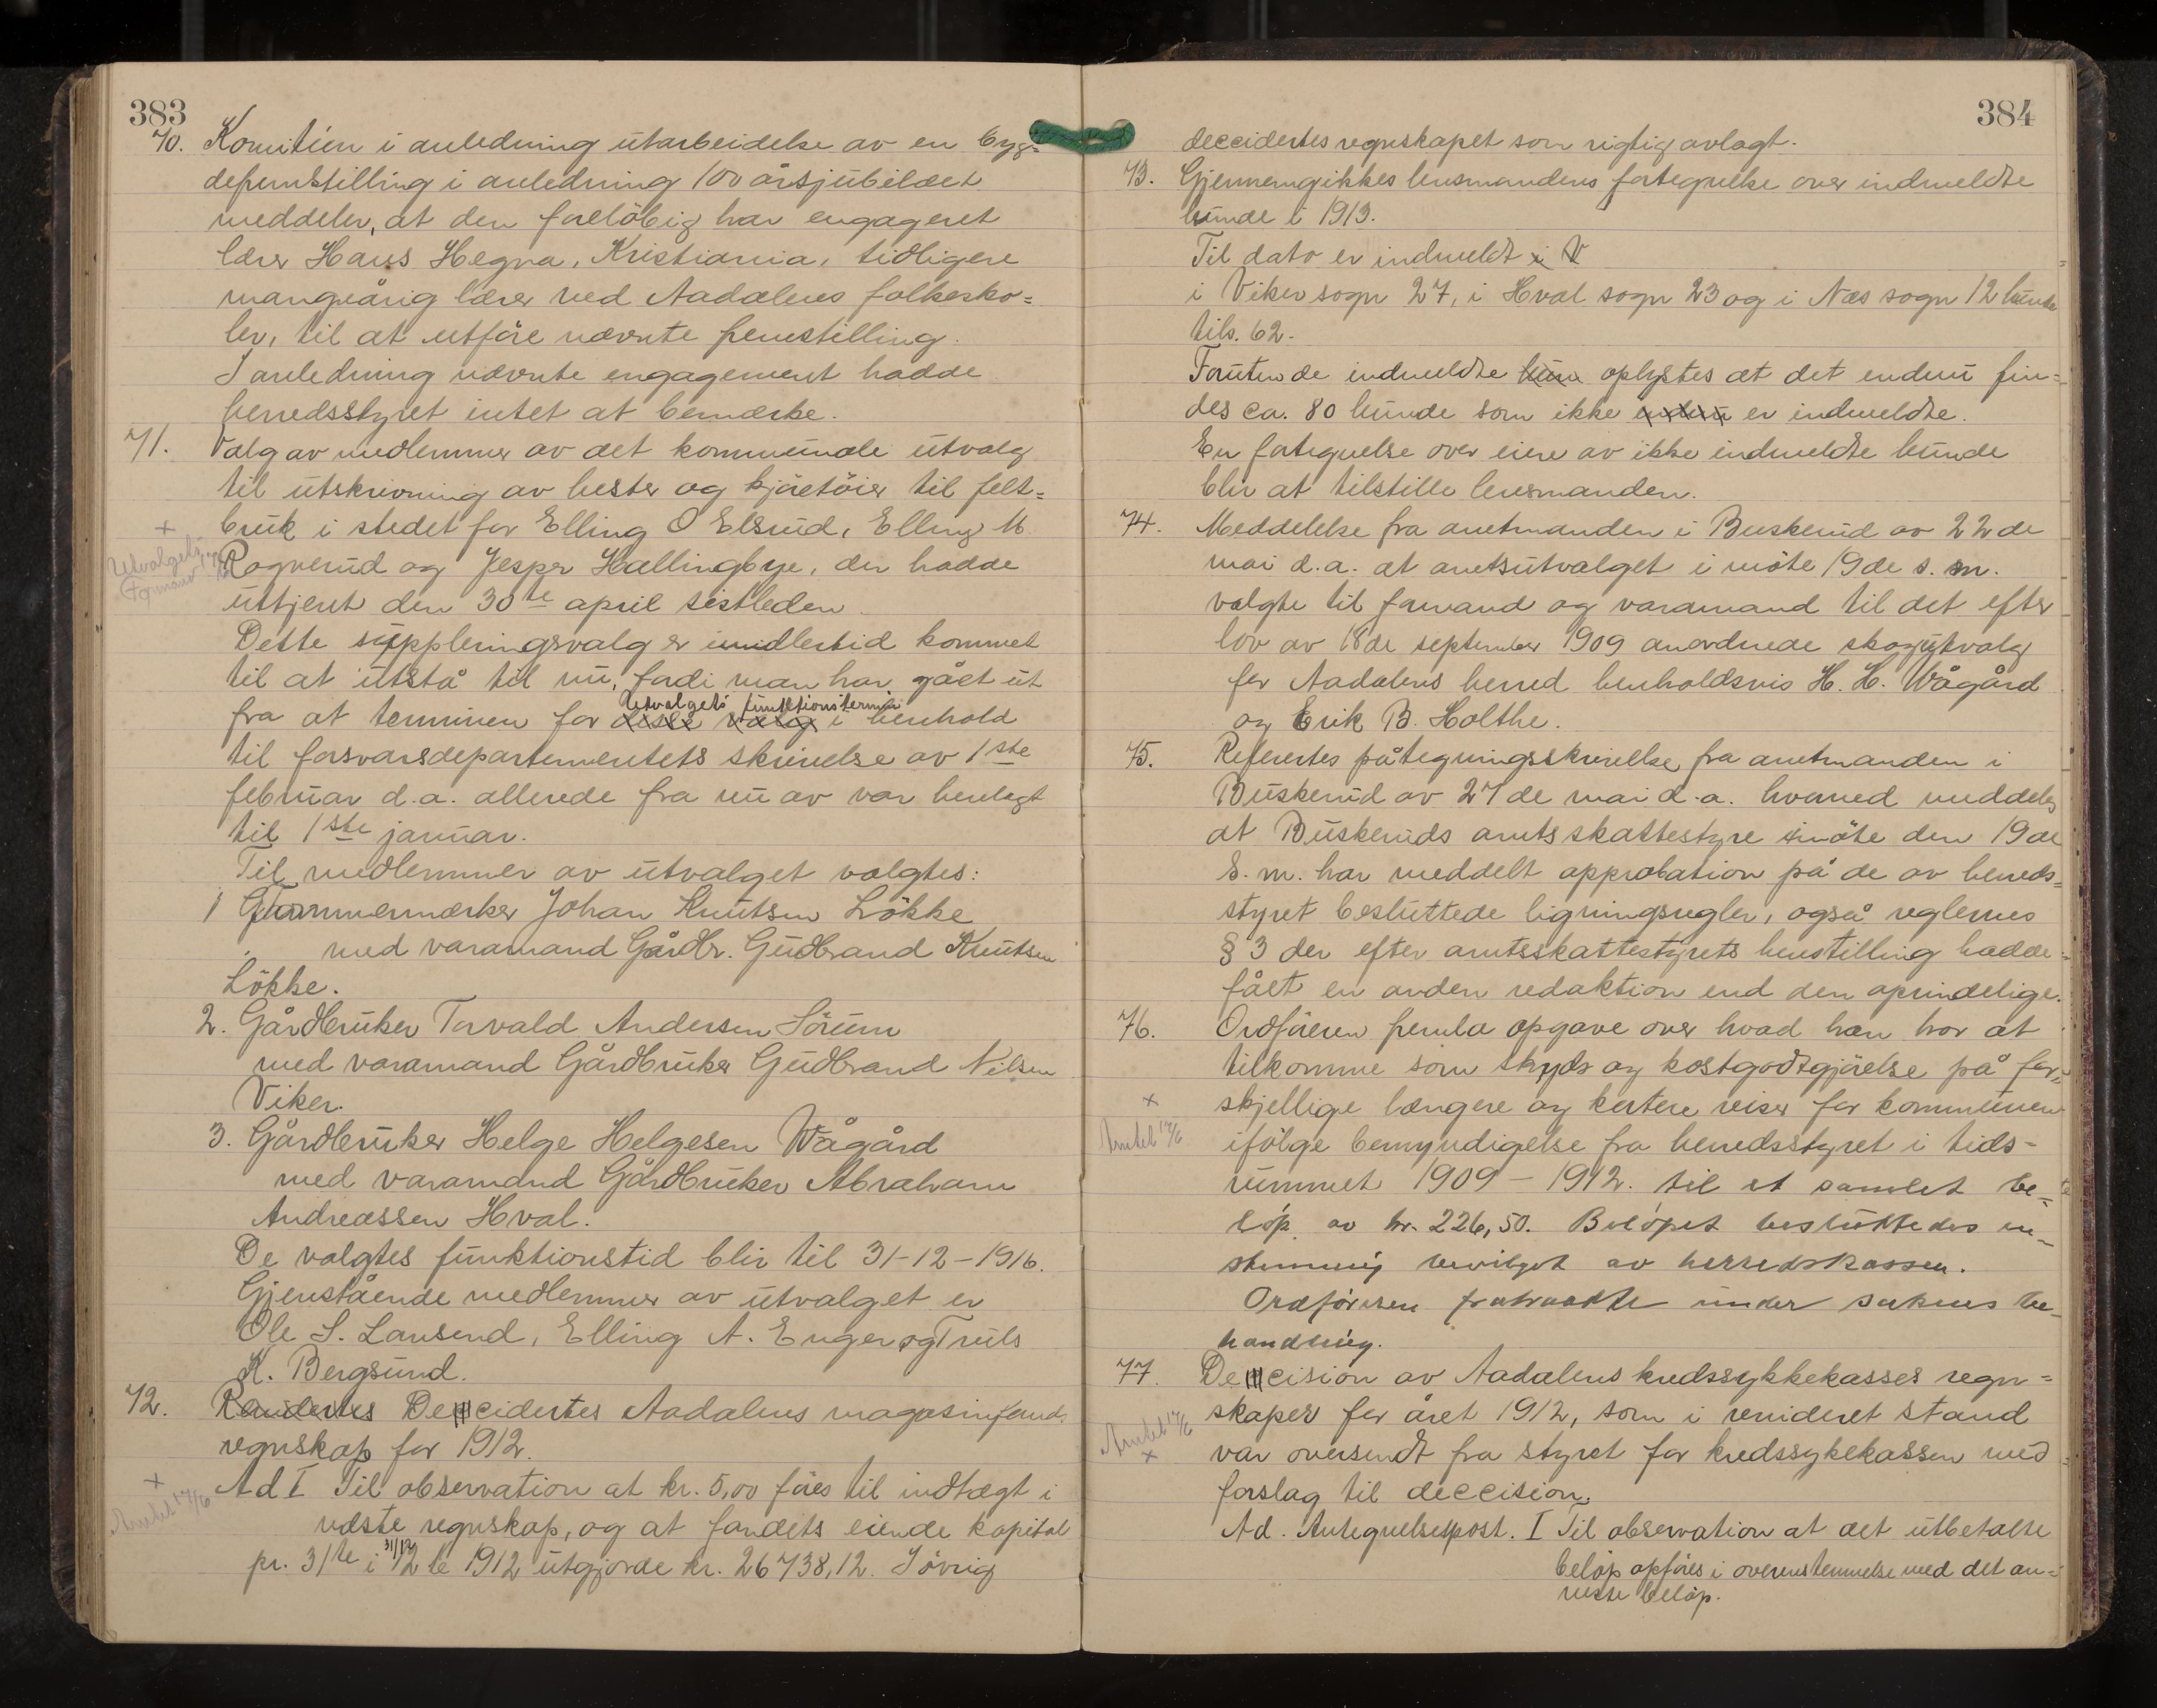 383
70. Komitéen i anledning utarbeidelse av en byg=
defremstilling i anledning 100 årsjubilæet
meddeler, at den foreløbig har engageret
lærer Hans Hegna, Kristiania, tidligere
mangeårig lærer ved Aadalens folkesko=
ler, til at utføre nævnte fremstilling.
I anledning nævnte engagement hadde
herredsstyret intet at bemærke.
71. Valg av medlemmer av det kommunale utvalg
til utskrivning av hester og kjøretøier til felt=
bruk i stedet for Elling O Elsrud, Elling M.
Rognerud og Jesper Hallingbye, der hadde
uttjent den 30te april sistleden.
Utvalgets
Formand
Dette suppleringsvalg er imidlertid kommet
til at utstå til nu, fordi man har gået ut
Utvalgets funktionstermin
fra at terminen for disse valg i henhold
til forsvarsdepartementets skrivelse av 1ste
februar d.a. allerede fra nu av var henlagt
til 1ste januar.
Til medlemmer av utvalget valgtes:
1 Tømmermerker Johan Knutsen Løkke
med varamand Gårdbr. Gudbrand Knutsen
Løkke.
2. Gårdbruker Torvald Andersen Sørum
med varamand Gårdbruker Gudbrand Nilsen
Viker.
3. Gårdbruker Helge Helgesen Wågård
med varamand Gårdbruker Abraham
Andreassen Hval.
De valgtes funktionstid blir til 31-12-1916.
Gjenstående medlemmer av utvalget er
Ole S. Lansend, Elling A. Enger og Truls
K. Bergsund.
72. Revidertes Decidertes Aadalens magasinfonds
regnskap for 1912.
Ad I Til observation at kr. 5,00 føres til indtægt i
næste regnskap, og at fondets eiende kapital
31/12
pr. 31te i 12te 1912 utgjorde kr. 26738,12. Iøvrig
Anvist 17/6
384
deccidertes regnskapet som rigtig avlagt.
73. Gjennemgikkes lensmandens fortegnelse over indmeldte
hunde i 1913.
Til dato er indmeldt i V
i Viker sogn 27, i Hval sogn 23 og i Næs sogn 12 hunde
tils. 62.
Foruten de indmeldte hun oplystes at det endnu fin=
des ca. 80 hunde som ikke endnu er indmeldte.
En fortegnelse over eiere av ikke indmeldte hunde
blir at tilstille lensmanden.
74. Meddelelse fra amtmanden i Buskerud av 22de
mai d.a. at amtsutvalget i møte 19de s. m.
valgte til formand og varamand til det efter
lov av 18de september 1909 anordnede skogutvalg
for Aadalens herred henholdsvis H. H. Wågård
og Erik B. Holthe.
75. Refererttes påtegningsskrivelse fra amtmanden i
Buskerud av 27de mai d.a. hvorved meddeles
at Buskeruds amtsskattestyre i møte den 19de
s. m. har meddelt approbation på de av herreds=
styret besluttede ligningsregler, også reglernes
§ 3 der efter amtsskattestyrets henstilling hadde
fået en anden redaktion end den oprindelige.
76. Ordføreren fremla opgave over hvad han har at
tilkomme som skyds og kostgodtgjørelse på for=
skjellige længere og kortere reiser for kommunen
ifølge bemyndigelse fra herredsstyret i tids-
rummet 1909 - 1912. til et samlet be-
løp av kr. 226,50. Beløpet besluttedes en-
stemmig bevilget av herredskassen.
Anvist 17/6
Ordføreren fratraadte under sakens be-
handling.
77. Decision av Aadalens kredssykkekasses regn=
skaper for året 1912, som i revideret stand
var oversendt fra styret for kredssykekassen med
forslag til deccision.
Anvist 17/6
Ad. Antegnelsespost. I Til observation at det utbetalte
beløp opføres i overenstemmelse med det an=
viste beløp.